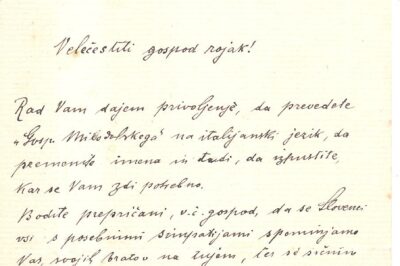 Velečestiti gospod rojak!
Rad Vam dajem privoljenje, da prevedete
„Gosp. Mirodolskega" na italijanski jezik, da
premenite imena in tudi, da izpustite,
kar se Vam zdi potrebno.
Bodite prepričani, v. č. gospod, da se Slovenci
vsi s posebnimi simpatijami spominjamo
Vas, svojih bratov na tujem, ter se